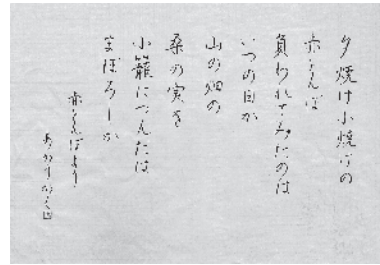 夕焼け小焼けの
赤とんぼ
負われてみたのは
いつの日か
山の畑の
桑の実を
小籠につんだは
まぼろしか
赤とんぼより